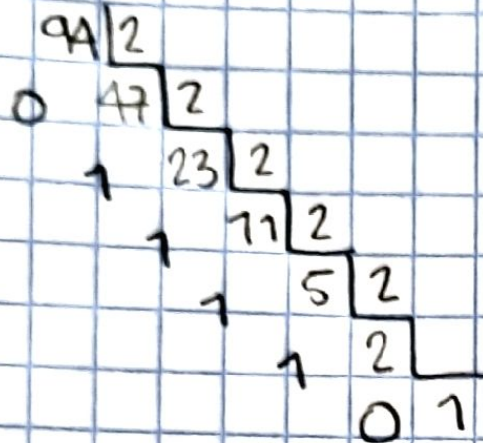 94 2
0 47 2
1 23 2
1 11 2
1 5 2
1 2
0 1